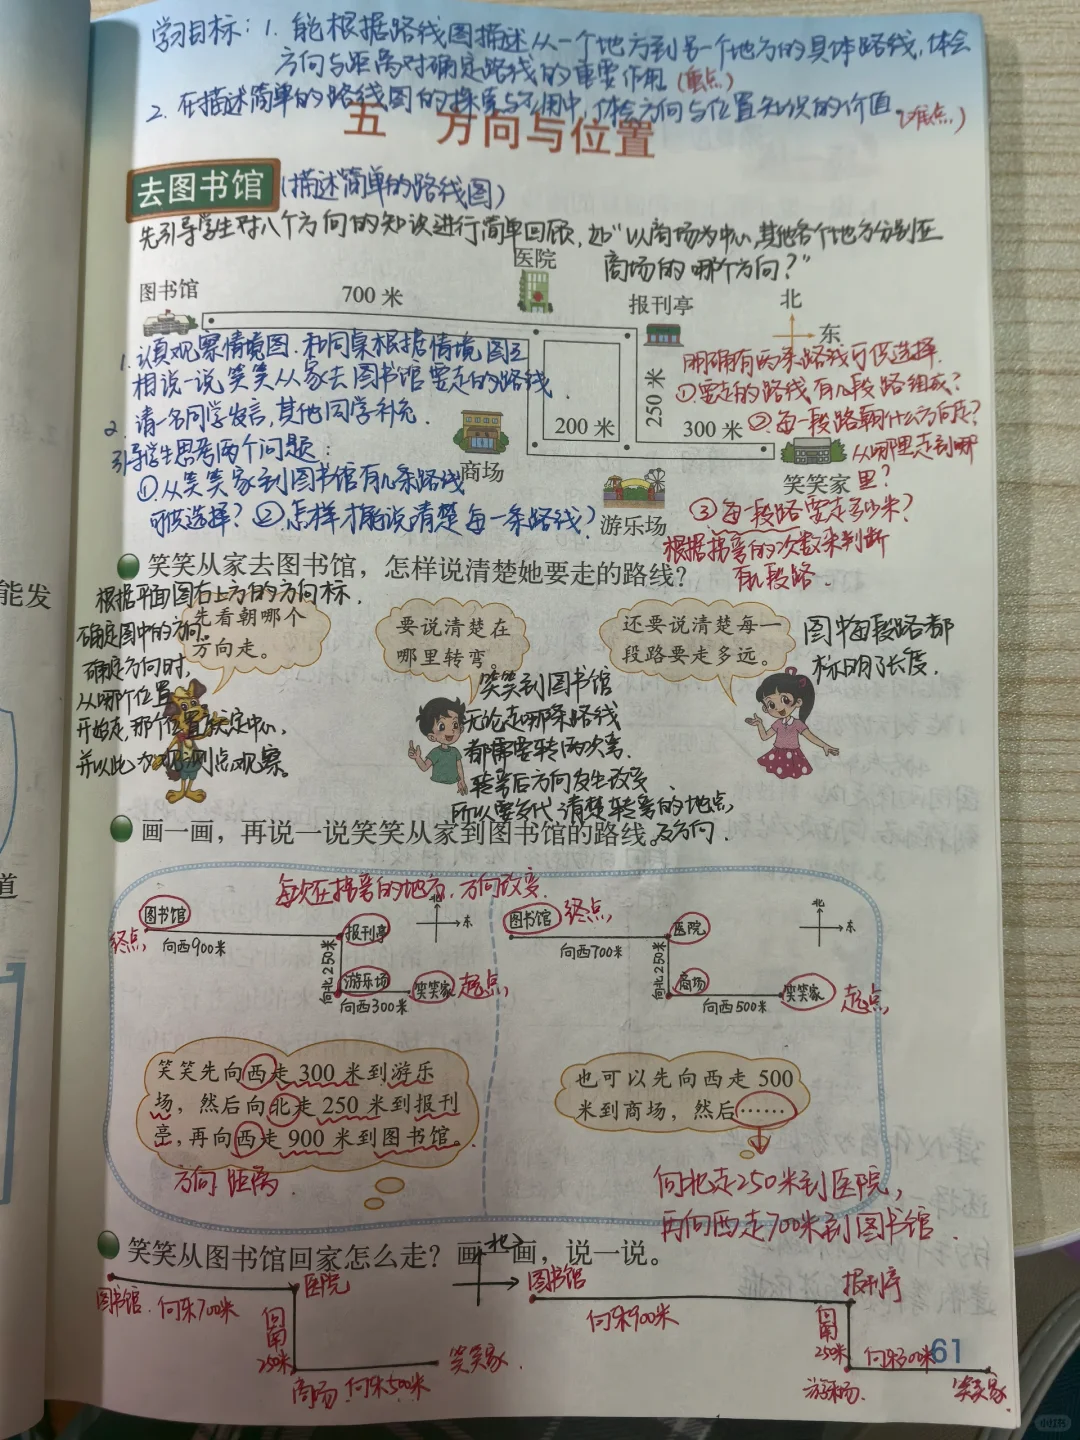 学习目标：1. 能根据路线图描述从一个地方到另一个地方的具体路线，体会
方向与距离对确定路线的重要作用（重点）
2. 在描述简单的路线图的探索与应用中，体会方向与位置知识的价值。（难点）
五 方向与位置
去图书馆（描述简单的路线图）
先引导学生对八个方向的知识进行简单回顾，如“以商场为中心，其他各个地方分别在
商场的哪个方向？”
医院
图书馆
700 米
报刊亭
北
东
1. 认真观察情境图，和同桌根据情境图互
相说一说笑笑从家去图书馆要走的路线.
2. 请一名同学发言，其他同学补充.
引导学生思考两个问题：
①从笑笑家到图书馆有几条路线
可供选择？②怎样才能说清楚每一条路线？
明确有两条路线可供选择.
①要走的路线有几段路组成？
②每一段路朝什么方向走？
从哪里走到哪
里？
③每一段路要走多少米？
根据拐弯的次数来判断
有几段路.
250 米
200 米
300 米
商场
游乐场
笑笑家
笑笑从家去图书馆，怎样说清楚她要走的路线？
根据平面图右上方的方向标，
确定图中的方向。
确定方向时，
从哪个位置
开始走，那个位置就定中心，
并以此为观测点观察。
先看朝哪个
方向走。
要说清楚在
哪里转弯。
还要说清楚每一
段路要走多远。
图中每段路都
标明了长度.
笑笑到图书馆
无论走哪条路线
都需要转两次弯.
转弯后方向发生改变，
所以要交代清楚转弯的地点
及方向.
画一画，再说一说笑笑从家到图书馆的路线。
每次在拐弯的地方，方向改变.
图书馆
终点
向西900米
报刊亭
向北250米
游乐场
笑笑家
起点
向西300米
北
东
图书馆
终点
向西700米
医院
向北250米
商场
笑笑家
起点
向西500米
北
东
笑笑先向西走 300 米到游乐
场，然后向北走 250 米到报刊
亭，再向西走 900 米到图书馆。
方向 距离
也可以先向西走 500
米到商场，然后……
向北走250米到医院，
再向西走700米到图书馆.
笑笑从图书馆回家怎么走？画一画，说一说。
北
图书馆
向东700米
医院
向南
250米
商场
向东500米
笑笑家.
图书馆
向东900米
报刊亭
向南
250米
游乐场
向东300米
笑笑家.
61
能发
道
小红书